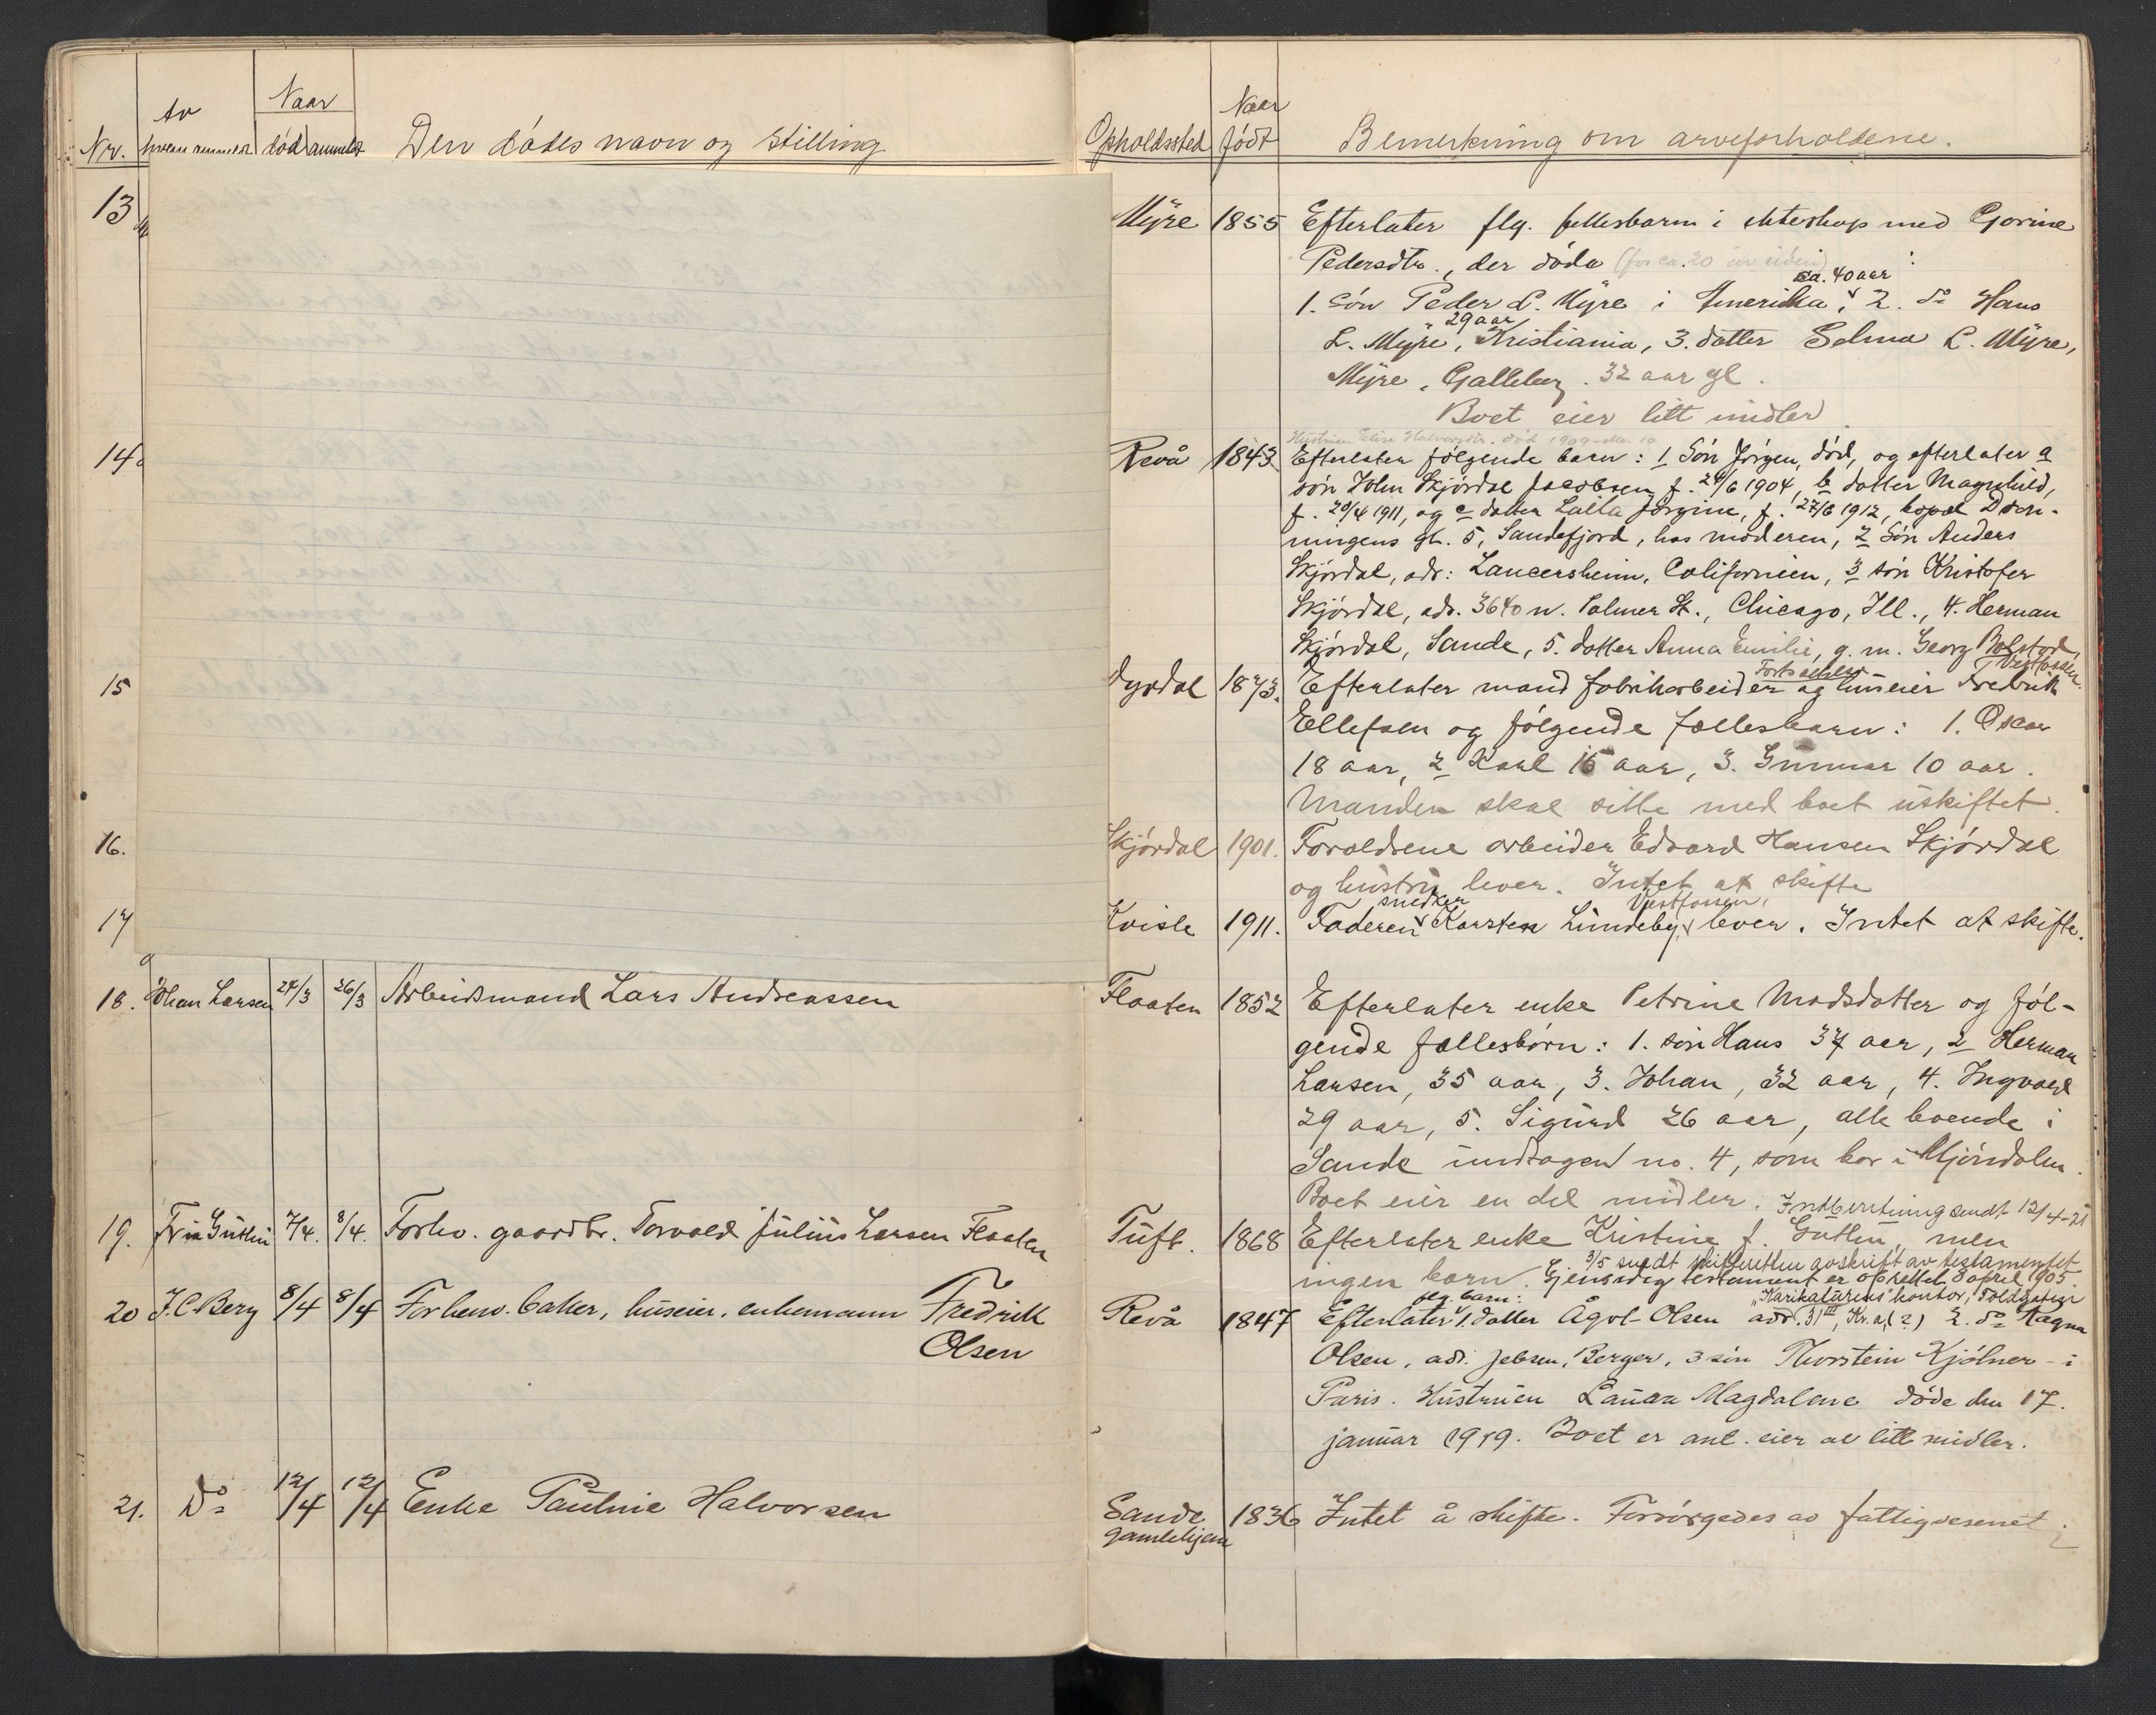 Nr.
Av
hvem anmeldt
Naar
död
anmeldt
Den dödes navn og stilling
Opholdssted
Naar
født
Bemerkning om arveforholdene.
13
Myre 1855 Efterlater flg. fellesbarn i ekteskap med Gorine
Pedersdtr., der döde (for ca. 20 år siden) :
ca. 40 aar
1. Sön Peder L. Myre i Amerika, 2. do Hans
29 aar
L. Myre, Kristiania, 3. datter Selma L. Myre,
Myre, Galleberg. 32 aar gl.
Boet eier litt midler
14
Hustruen Elise Halvorsdtr. död 1909 eller 10
Revå 1843 Efterlater følgende barn: 1 Sön Jörgen, död, og efterlater a
sön John Skjördal Jacobsen f. 26/6 1904, b datter Magnhild,
f. 20/4 1911, og c datter Lalla Jörgine, f. 27/6 1912, bopæl Dron-
ningens gt. 5, Sandefjord, hos moderen, 2 Sön Anders
Skjördal, adr: Lancersheim, Californien, 3 sön Kristofer
Skjördal, adr. 3640 w. Palmer St., Chicago, Ill., 4. Herman
Skjördal, Sande, 5. datter Anna Emilie, g. m. Georg Bolstad,
Vestfossen.
Fortsættes
15
Dyrdal 1873. Efterlater mand fabrikarbeider og huseier Fredrik
Ellefsen og følgende fællesbarn: 1. Oscar
18 aar, 2 Karl 15 aar, 3. Gunnar 10 aar.
Manden skal sitte med boet uskiftet.
16.
Skjördal 1901. Forældrene arbeider Edvard Hansen Skjördal
og hustru lever. Intet at skifte
17
snedker Vestfossen,
Kvisle 1911. Faderen Karsten Lundeby, lever. Intet at skifte.
18. Johan Larsen 24/3 26/3 Arbeidsmand Lars Andreassen
Flaaten 1852 Efterlater enke Petrine Madsdatter og föl-
gende fællesbörn: 1. sön Hans 37 aar, 2 Herman
Larsen, 35 aar, 3. Johan, 32 aar, 4. Ingvald
29 aar, 5. Sigurd 26 aar, alle boende i
Sande undtagen no. 4, som bor i Mjöndalen.
Boet eier en del midler. Indberetning sendt 12/4-21
19. Fru Gutlin 7/4. 8/4. Forhv. gaardbr. Torvald Julius Larsen Flaaten
Tuft. 1868 Efterlater enke Kristine f. Gutlin, men
3/5 sendt skifteretten avskrift av testamentet
ingen barn. Gjensidig testament er oprettet 8 april 1905.
20 J. C. Berg 8/4 8/4 Forhenv. baker, huseier, enkemann Fredrik
Olsen
flg. barn: "Karikaturens" kontor, Toldgaten
Revå 1847 Efterlater 1. datter Ågot Olsen adr. 31 III, Kr.a, (?) 2. do Ragna
Olsen, adr. Jebsen, Berger, 3 sön Thorstein Kjölner i
Paris. Hustruen Laura Magdalene döde den 17.
januar 1919. Boet er ant. eier av litt midler.
21. Do 12/4 12/4 Enke Pauline Halvorsen
Sande
gamlehjem
1836 Intet å skifte. Forsörgedes av fattigvesenet